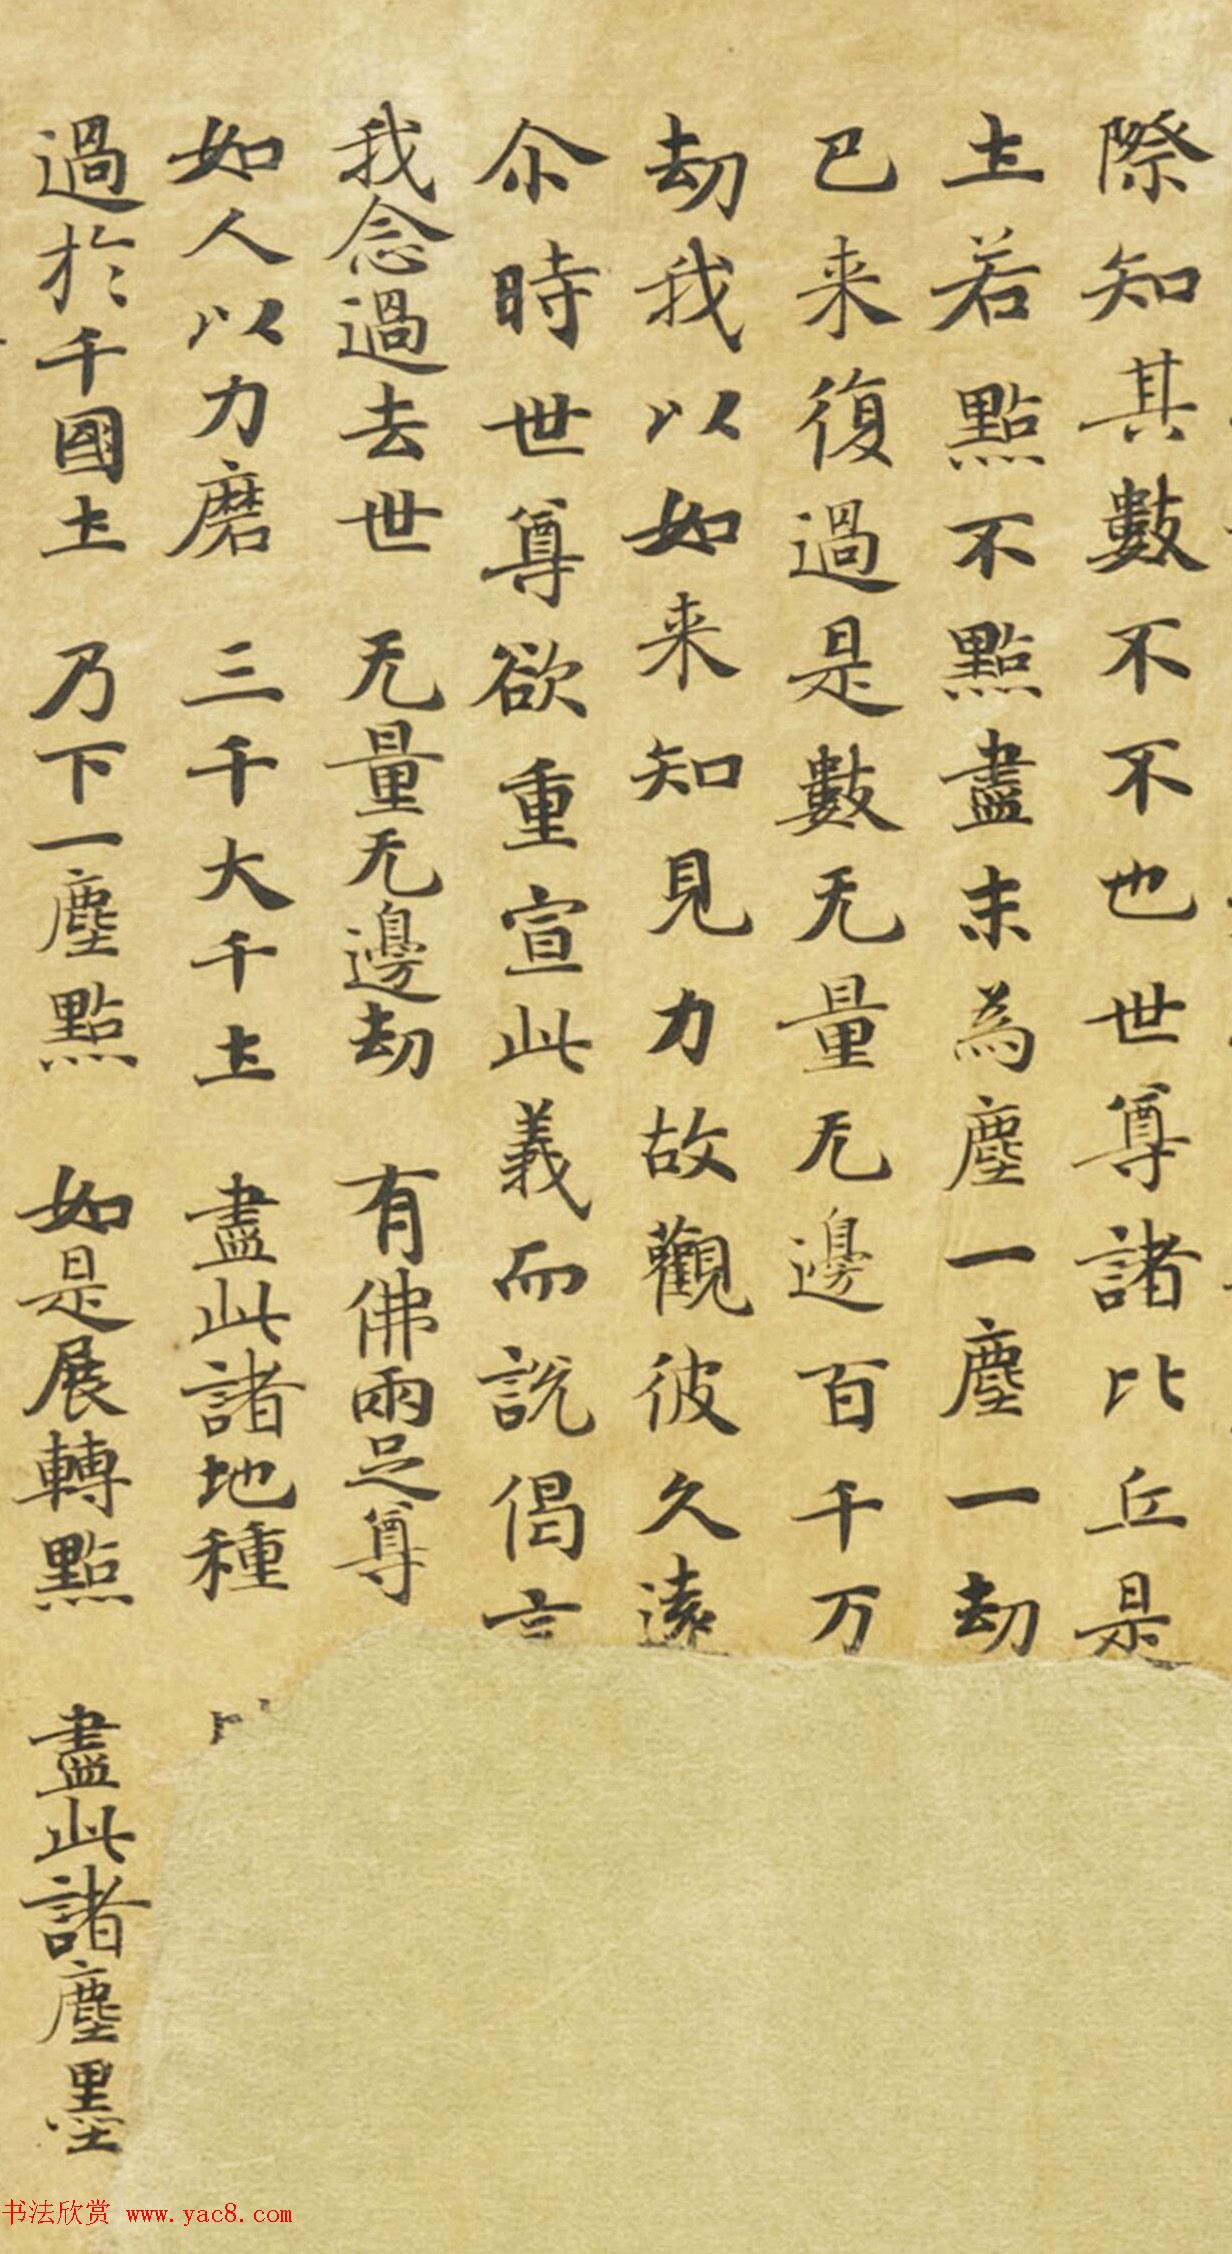 際知其數不不也世尊諸比丘是
土若點不點盡末為塵一塵一劫
已来復過是數无量无邊百千万
劫我以如来知見力故觀彼久遠
尒時世尊欲重宣此義而説偈言
我念過去世　无量无邊劫　有佛兩足尊
如人以力磨　三千大千土　盡此諸地種
過於千國土　乃下一塵點　如是展轉點　盡此諸塵墨
书法欣赏 www.yac8.com